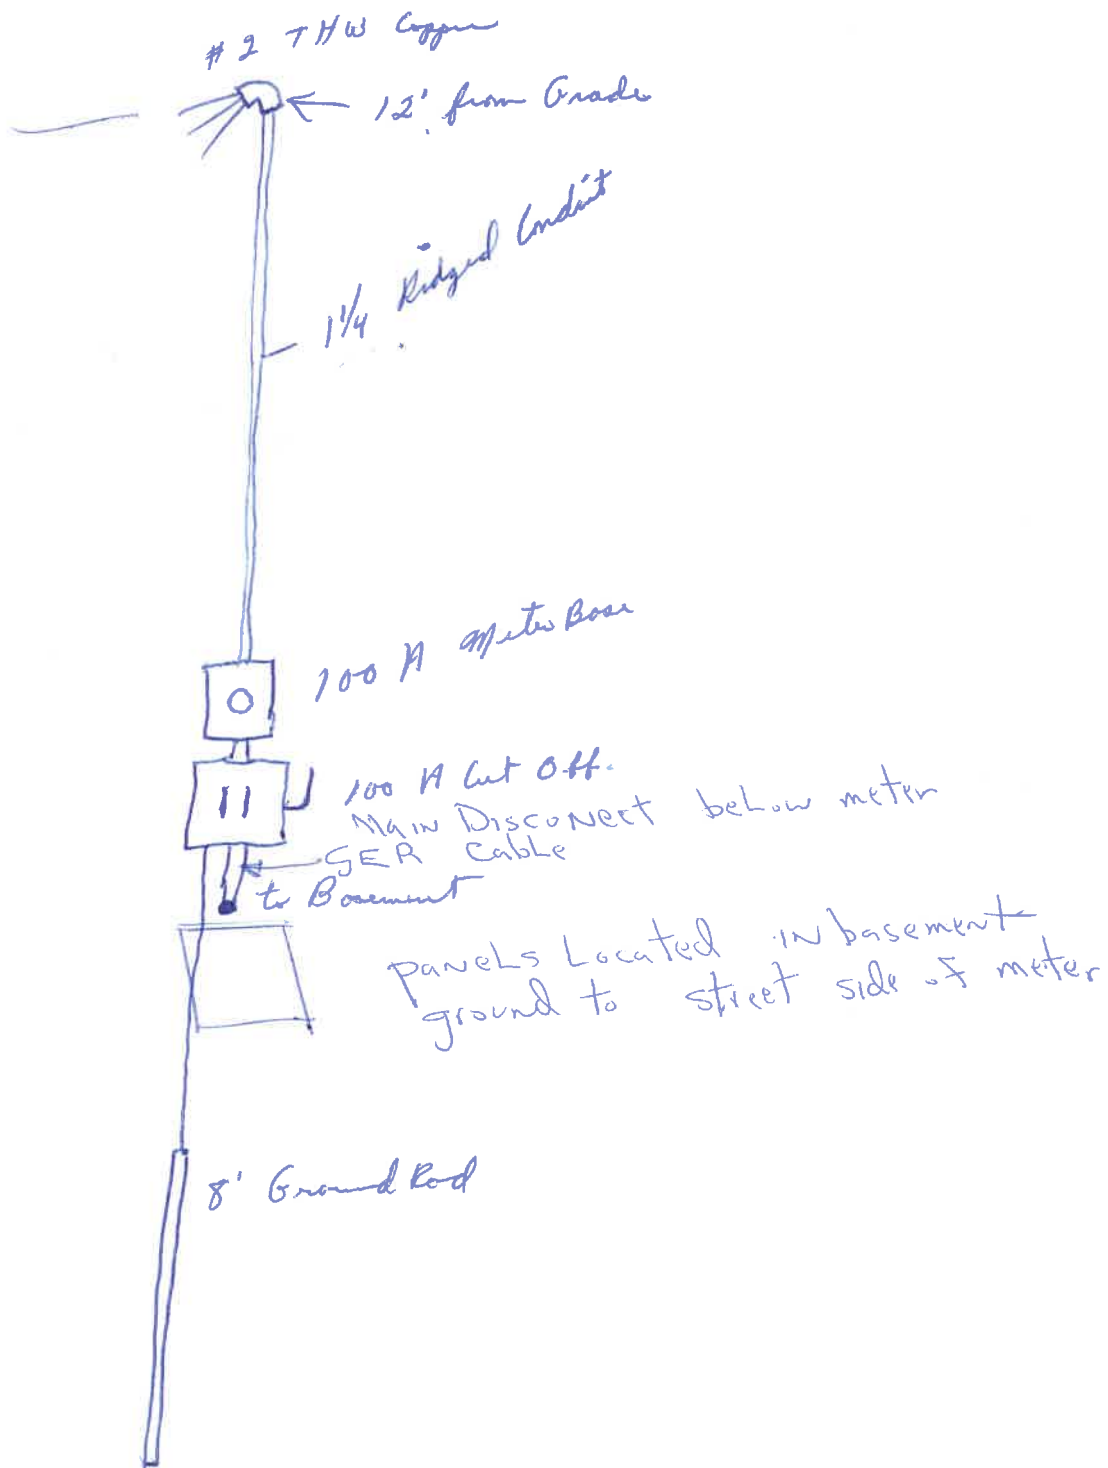 # 2 THW Copper
12' from Grade
1 1/4 Ridged Conduit
100 A Meter Base
100 A Cut Off.
Main Disconect below meter
SER Cable
to Basement
panels Located in basement
ground to street side of meter
8' Ground Rod